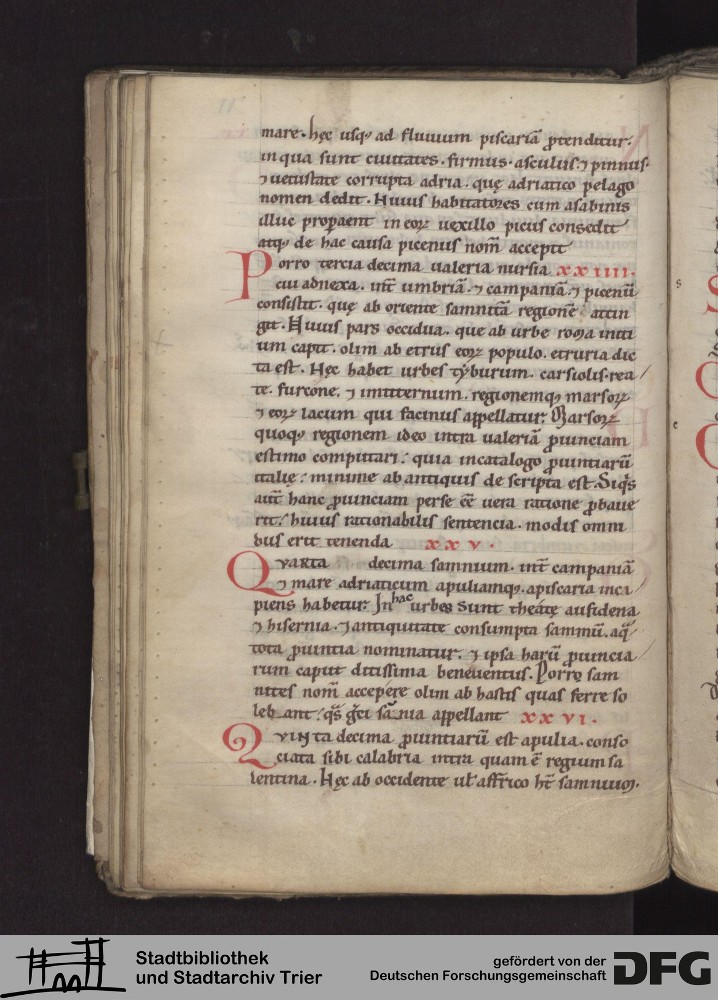 mare. hęc usq; ad fluuium piscariā ꝓtenditur.
in qua sunt ciuitates. firmus. asculus. ⁊ pinnus.
⁊ uetustate corrupta adria. quę adriatico pelago
nomen dedit. Huius habitatores cum a sabinis
illuc properaent in eoꝝ uexillo picus consedit
atq; de hac causa picenus nom̄ accepit
Porro tercia decima ualeria nursia xxiiii.
cui adnexa. int̄ umbriā. ⁊ campaniā. ⁊ picenū
consistit. quę ab oriente samnitū regionē attin
git. Huius pars occidua. que ab urbe roma initi
um capit. olim ab etrus eoꝝ populo. etruria dic
ta est. Hęc habet urbes tyburum. carsiolis. rea
te. furcone. ⁊ imiternum. regionemq; marsoꝝ
⁊ eoꝝ lacum qui facinus appellatur. Marsoꝝ
quoq; regionem ideo intra ualeriā ꝓuinciam
estimo computari. quia in catalogo ꝓuintiarū
italię. minime ab antiquis descripta est. Siq̄s
aut̄ hanc ꝓuinciam per se eē uera ratione ꝓbaue
rit. huius rationabilis sentencia. modis omni
bus erit tenenda xxv.
Qvarta decima samnium. int̄ campaniā
⁊ mare adriaticum apuliamq;. a piscaria inci
piens habetur. In hac urbes sunt theatę aufidena
⁊ hisernia. ⁊ antiquitate consumpta samniū. a q̄
tota ꝓuintia nominatur. ⁊ ipsa harū ꝓuincia
rum caput ditissima beneuentus. Porro sam
nites nom̄ accepere olim ab hastis quas ferre so
leb ant. q̄s ḡci sannia appellant xxvi.
Qvinta decima ꝓuintiarū est apulia. conso
ciata sibi calabria intra quam ē regium sa
lentina. Hęc ab occidente ul' affrico ht̄ samnium.
Stadtbibliothek
und Stadtarchiv Trier
gefördert von der
Deutschen Forschungsgemeinschaft
DFG